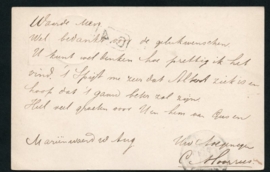 Waarde Mej.
Wel bedankt voor de gelukwenschen
U kunt wel denken hoe prettig ik het
vind. 't Spijt me zeer dat Albert ziek is en
hoop dat 't gauw beter zal zijn
Heel veel groeten voor U en van en
Mariënwaard Aug
Uw
C.